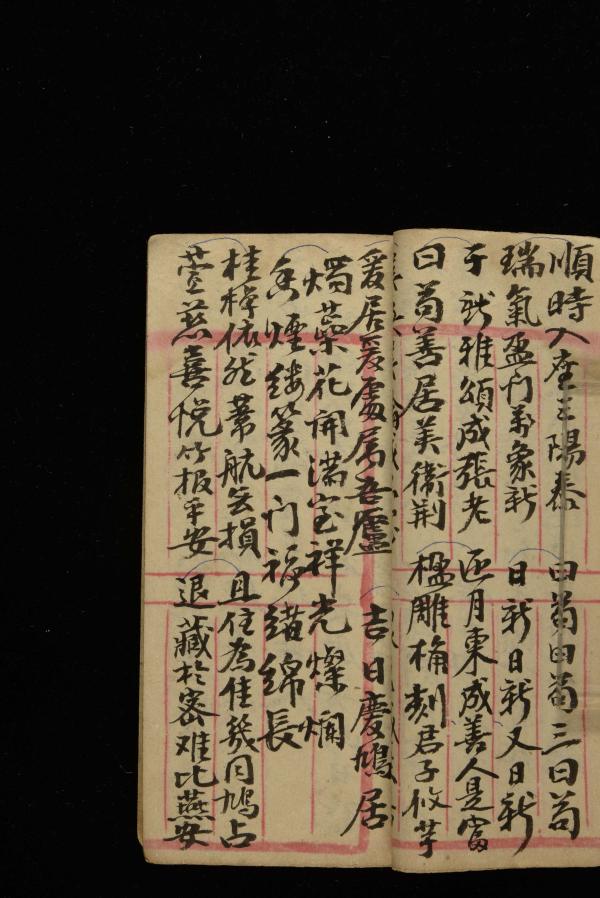 順時入座三陽泰 曰苟曰苟三曰苟
瑞氣盈门萬象新 日新日新又日新
于新雅頌成張老 月東成善人是富
曰苟善居美衞荆 楹雕桷刻君子攸芋
爰居爰處属吾廬 吉日慶鳩居
燭蘂花開满室祥光燦爛
香煙缕篆一门福緒綿長
桂棹依然葦航無損 且住為佳幾同鳩占
萱慈喜悦竹报平安 退藏於密难比燕安